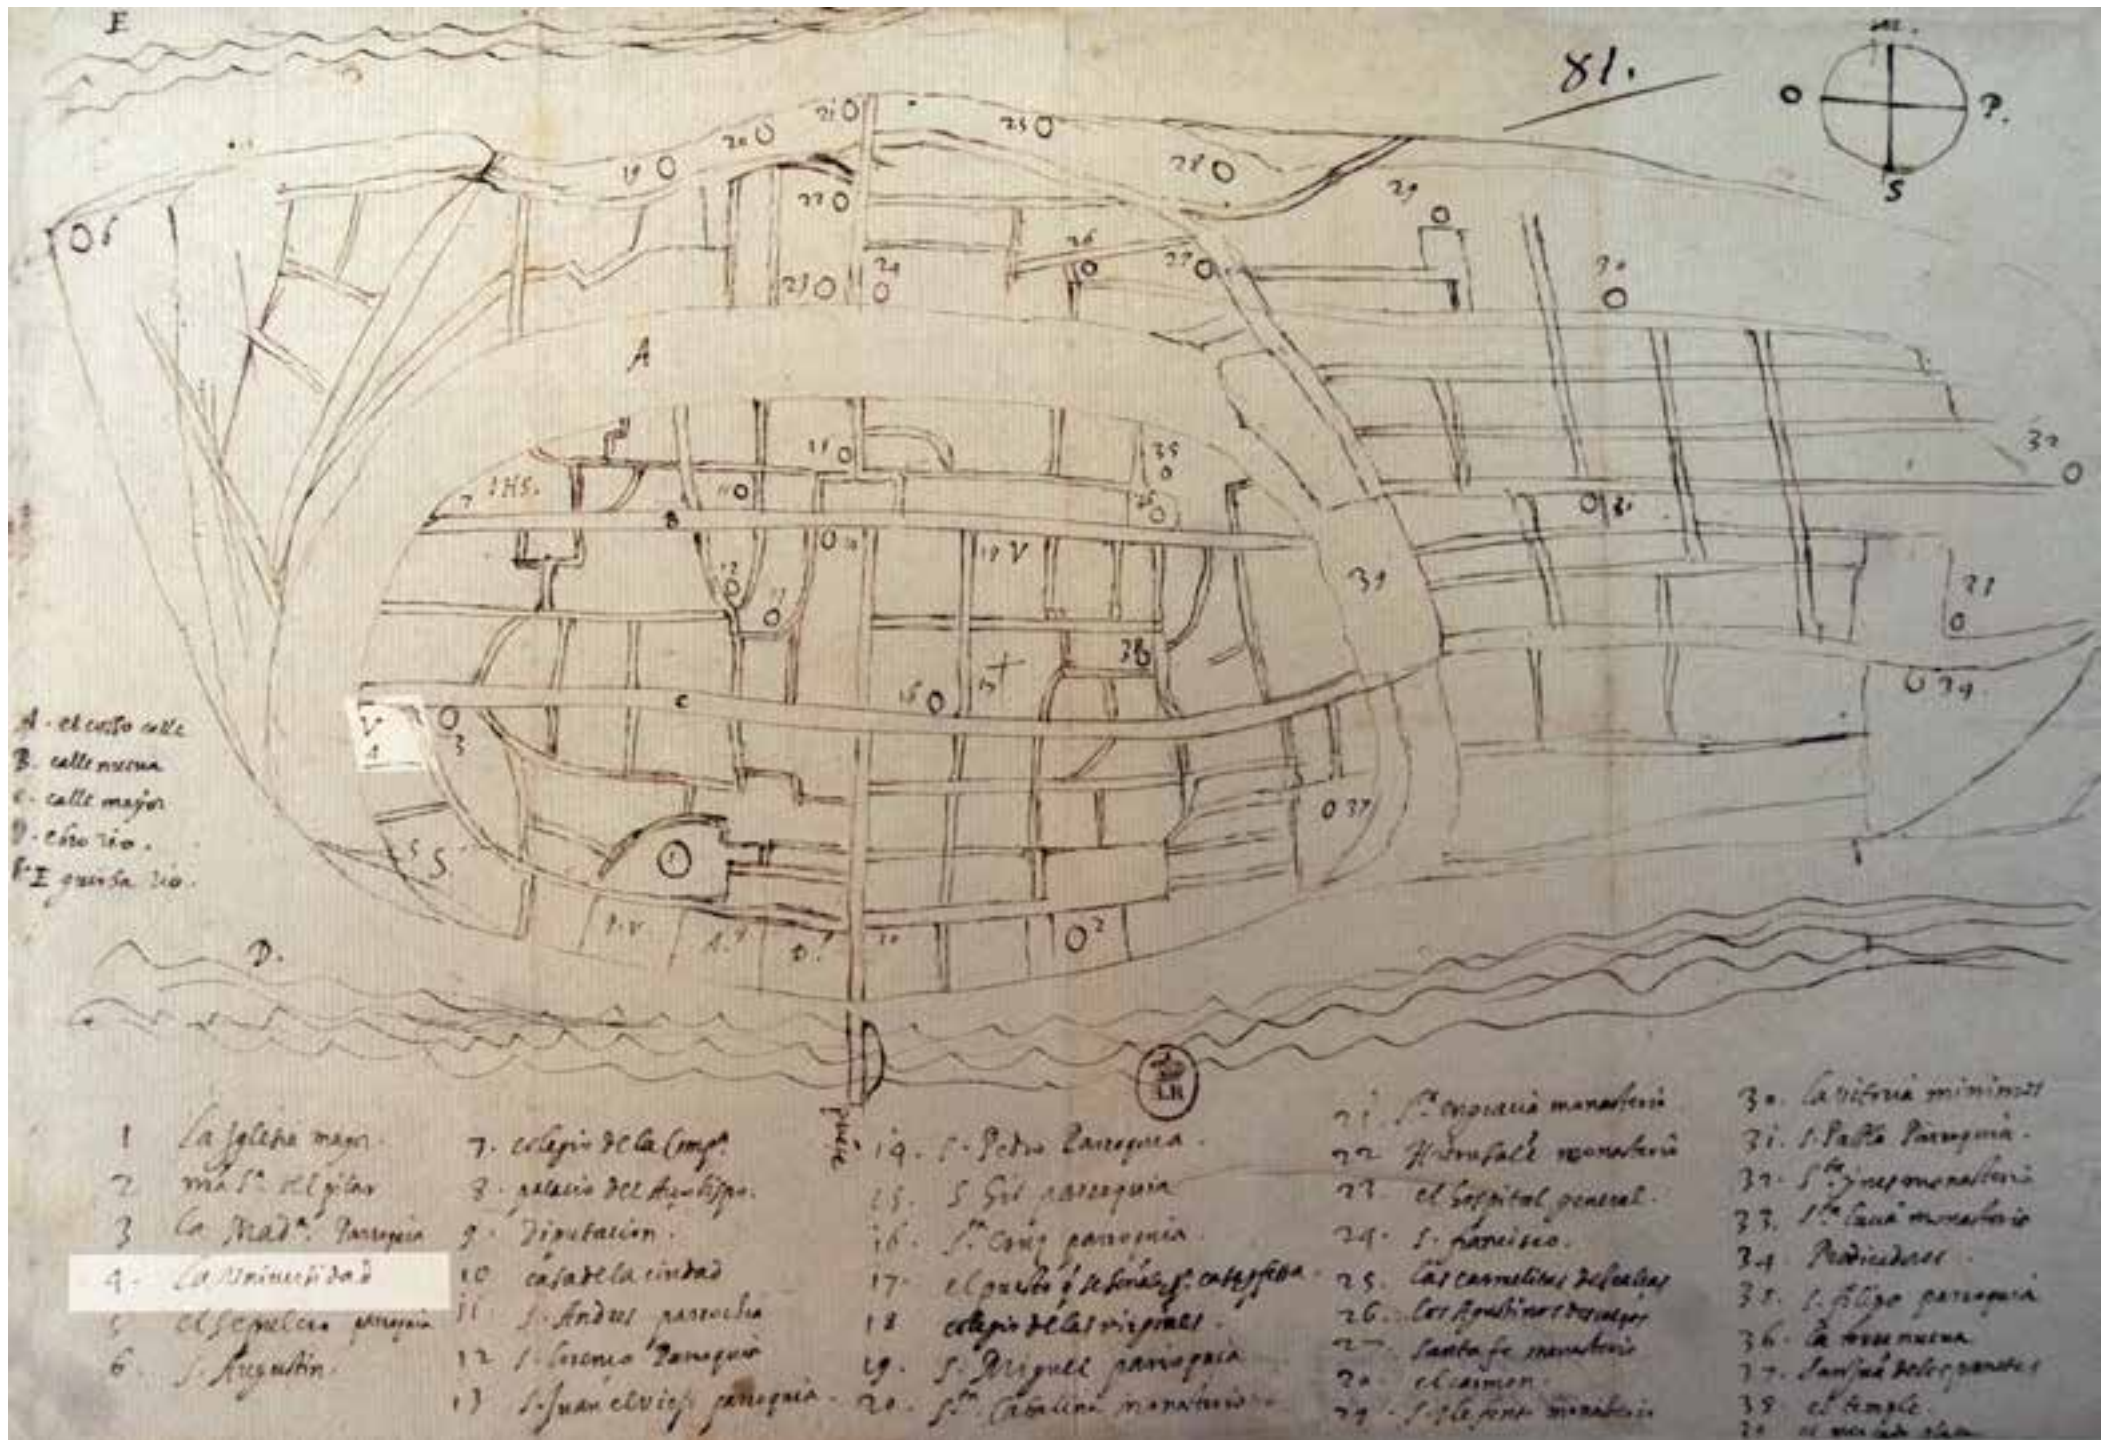 E
81.
m.
O
P.
S
06
19
20
21
25
28
29
22
23
24
26
27
30
32
A
7 IHS.
15
35
36
B
11
10
18 V
12
13
31
33
39
38
34
16
17
C
V
4
3
5 S
1
37
2
D.
A - el cosso calle
B. calle nueva
C - calle mayor
D - ebro rio.
E guerba rio.
puente
1 La Iglesia mayor.
2 del pilar
3 la Mad.ª Parroquia
4. La Universidad
5 el sepulcro parroquia
6. S. Augustin.
7. colegio de la Comp.ª
8. palacio del Arzobispo.
9. Diputacion.
10 casa de la ciudad
11 S. Andres parrochia
12 S. Lorenco Parroquia
13 S. Juan el viejo parroquia.
14. S. Pedro Parroquia.
15. S Gil parroquia
16. S.ta Cruz parroquia.
17. el puesto
18 colegio de las virgines.
19. S. Miguel parroquia
20. S.ta Catalina monasterio
21 S.ta engracia monasterio
22 monasterio
23 el hospital general.
24. S. francisco.
25. las carmelitas descalças
26. los Agustinos descalços
27 Santa fe monasterio
28. el carmen.
29. monasterio
30. La vitoria minimos
31. S. Pablo Parroquia.
32. S.ta ynes monasterio
33. S.ta lucia monasterio
34 Predicadores.
35. S. filipo parroquia
36. la torre nueva
37. San Juã de los panetes
38 el temple.
39 el mercado plaça